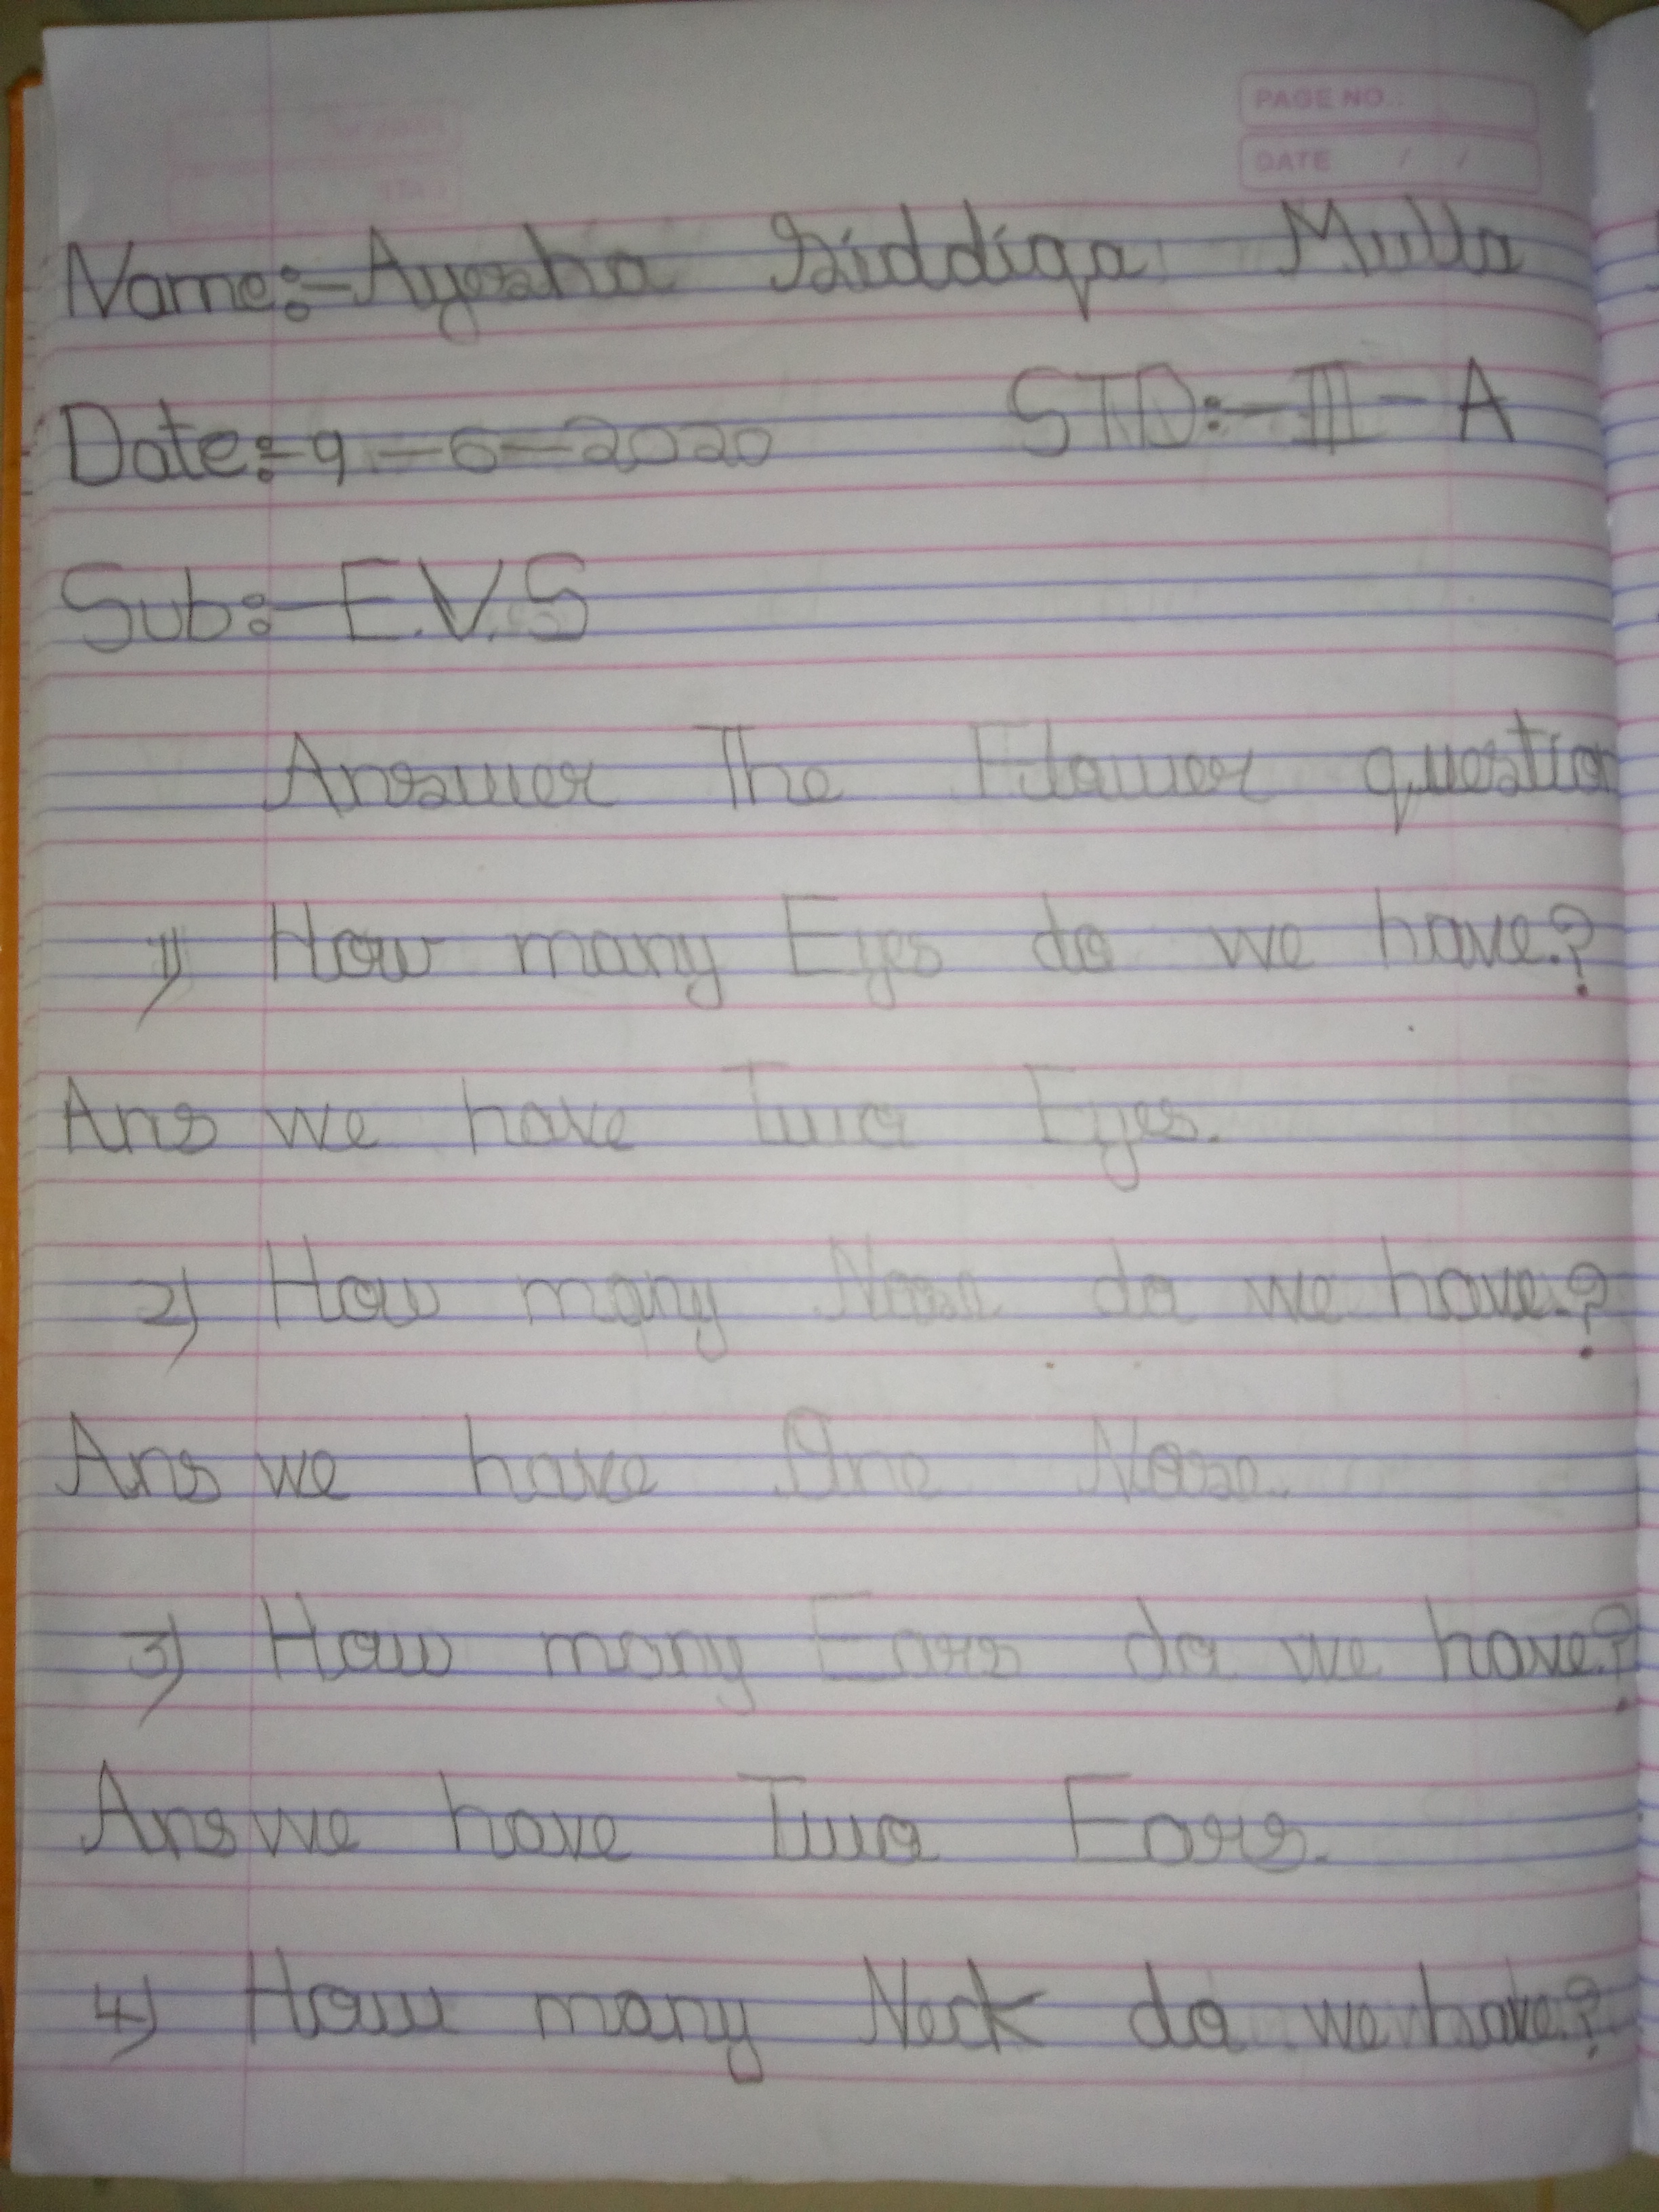 PAGE NO.:
DATE / /
Name:- Ayesha Siddiqa Mulla
Date:- 9-6-2020 STD:- III - A
Sub:- E.V.S
Answer The Flower question
1) How many Eyes do we have?
Ans we have Two Eyes.
2) How many Nose do we have?
Ans we have One Nose.
3) How many Ears do we have?
Ans we have Two Ears.
4) How many Neck do we have?